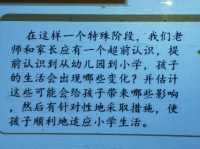 在这样一个特殊阶段，我们老
师和家长应有一个超前认识，提
前认识到从幼儿园到小学，孩子
的生活会出现哪些变化？并估计
这些可能会给孩子带来哪些影响
，然后有针对性地采取措施，使
孩子顺利地适应小学生活。